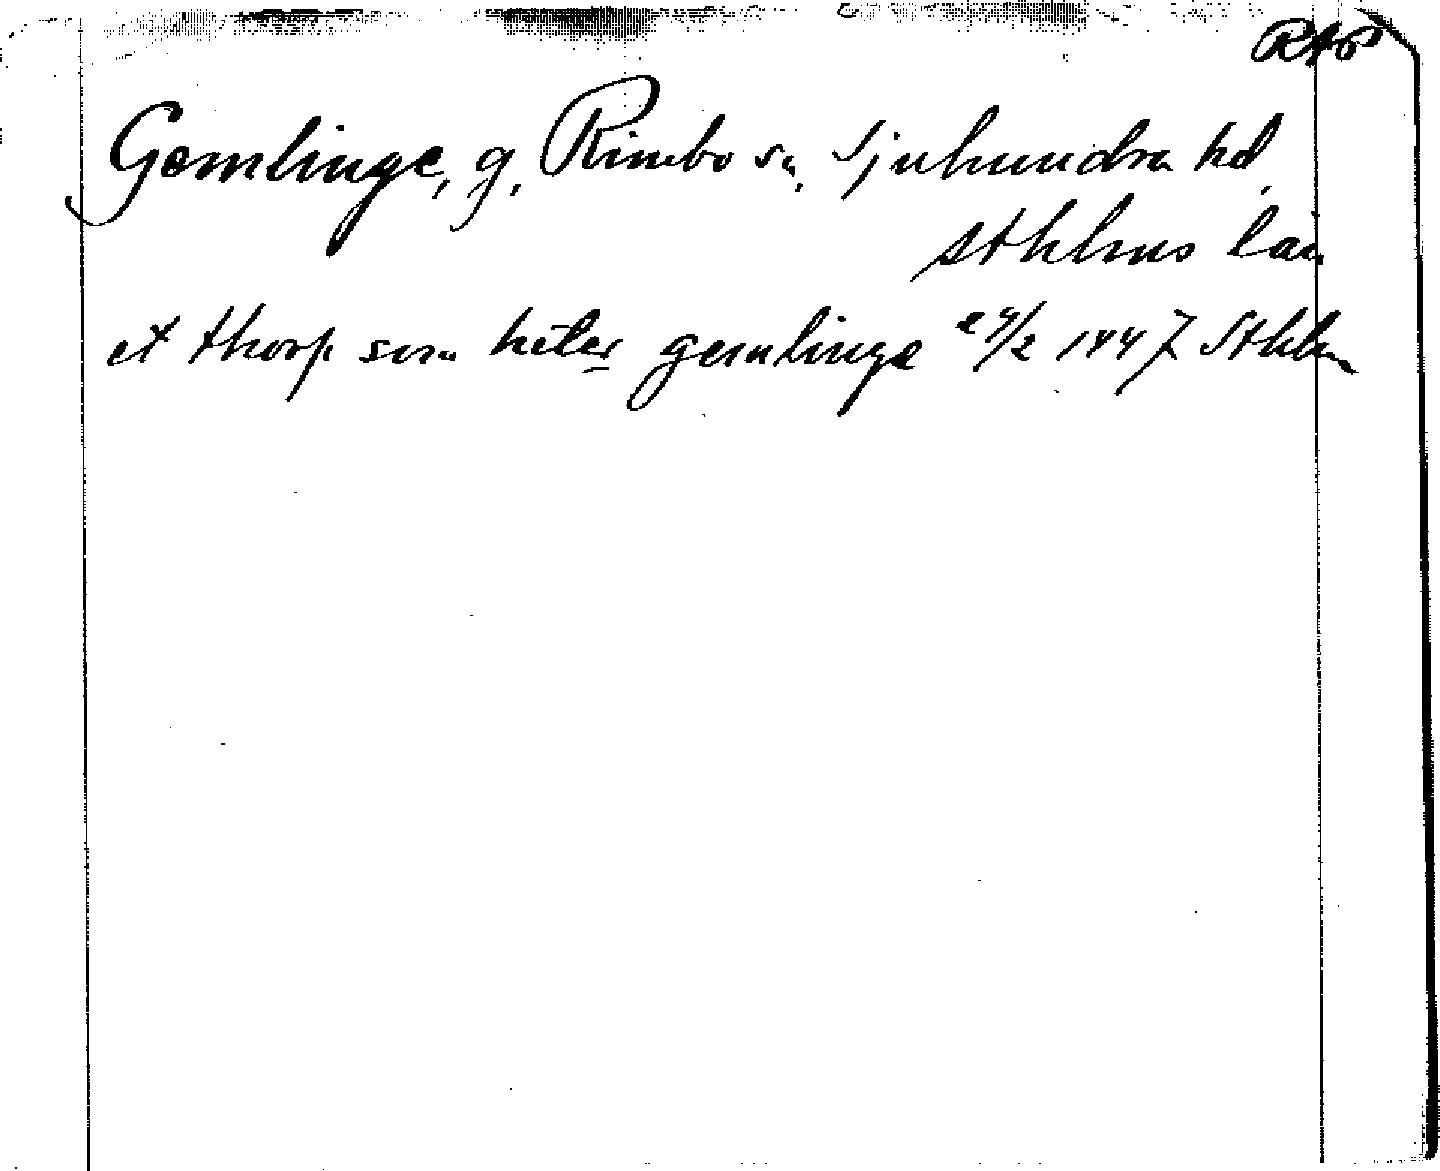 Gemlinge, g, Rimbo sn, Sjuhundra hd,
Sthlms län
et thorp som heter gemlinge 4/2 1447 Sthlm